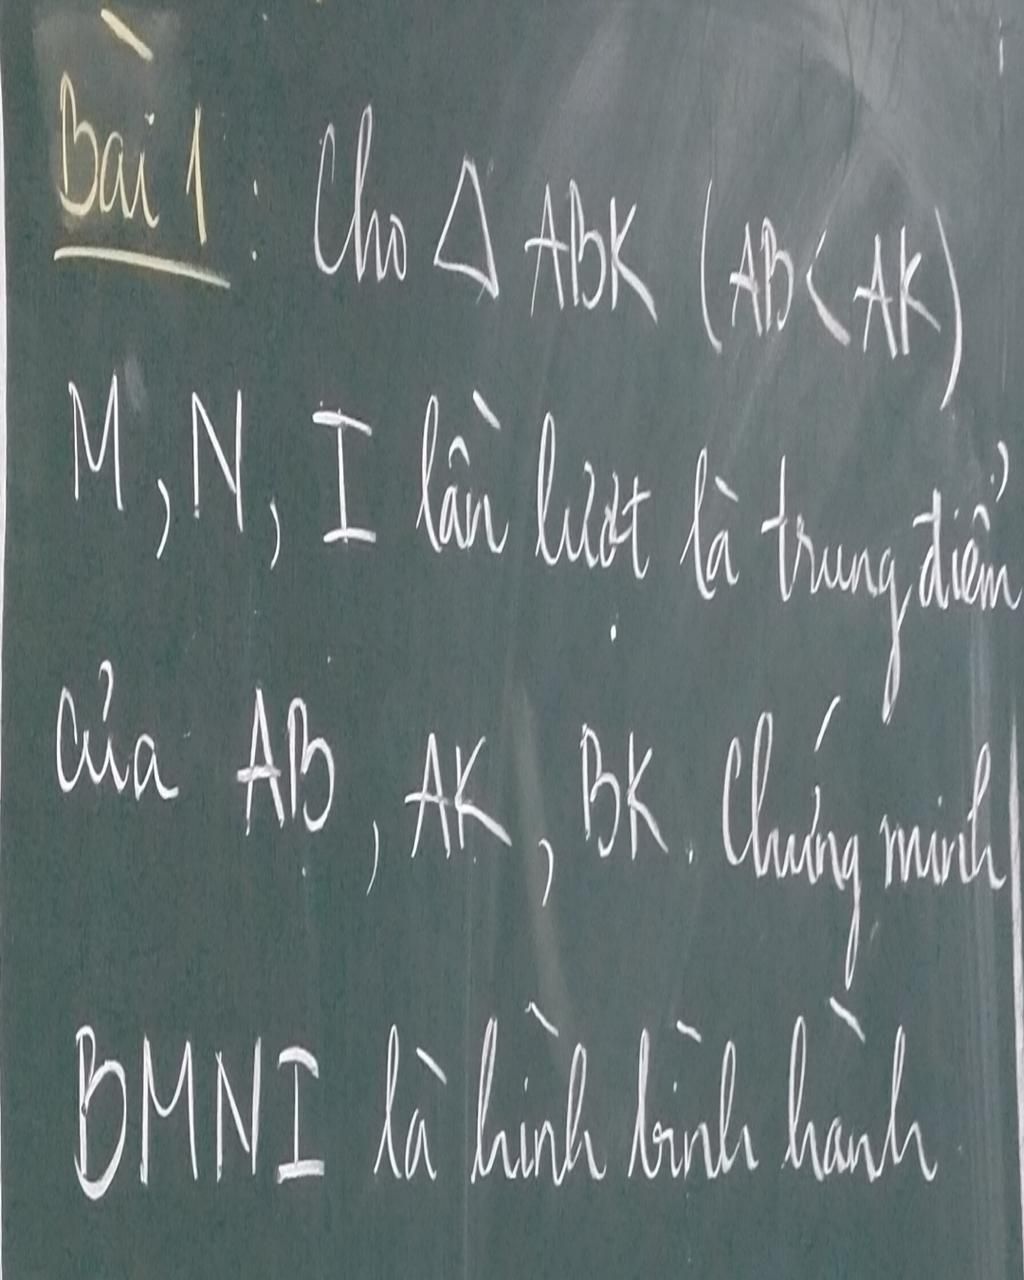 Bài 1 : Cho Δ ABK (AB < AK)
M, N, I lần lượt là trung điểm
của AB, AK, BK. Chứng minh
BMNI là hình bình hành